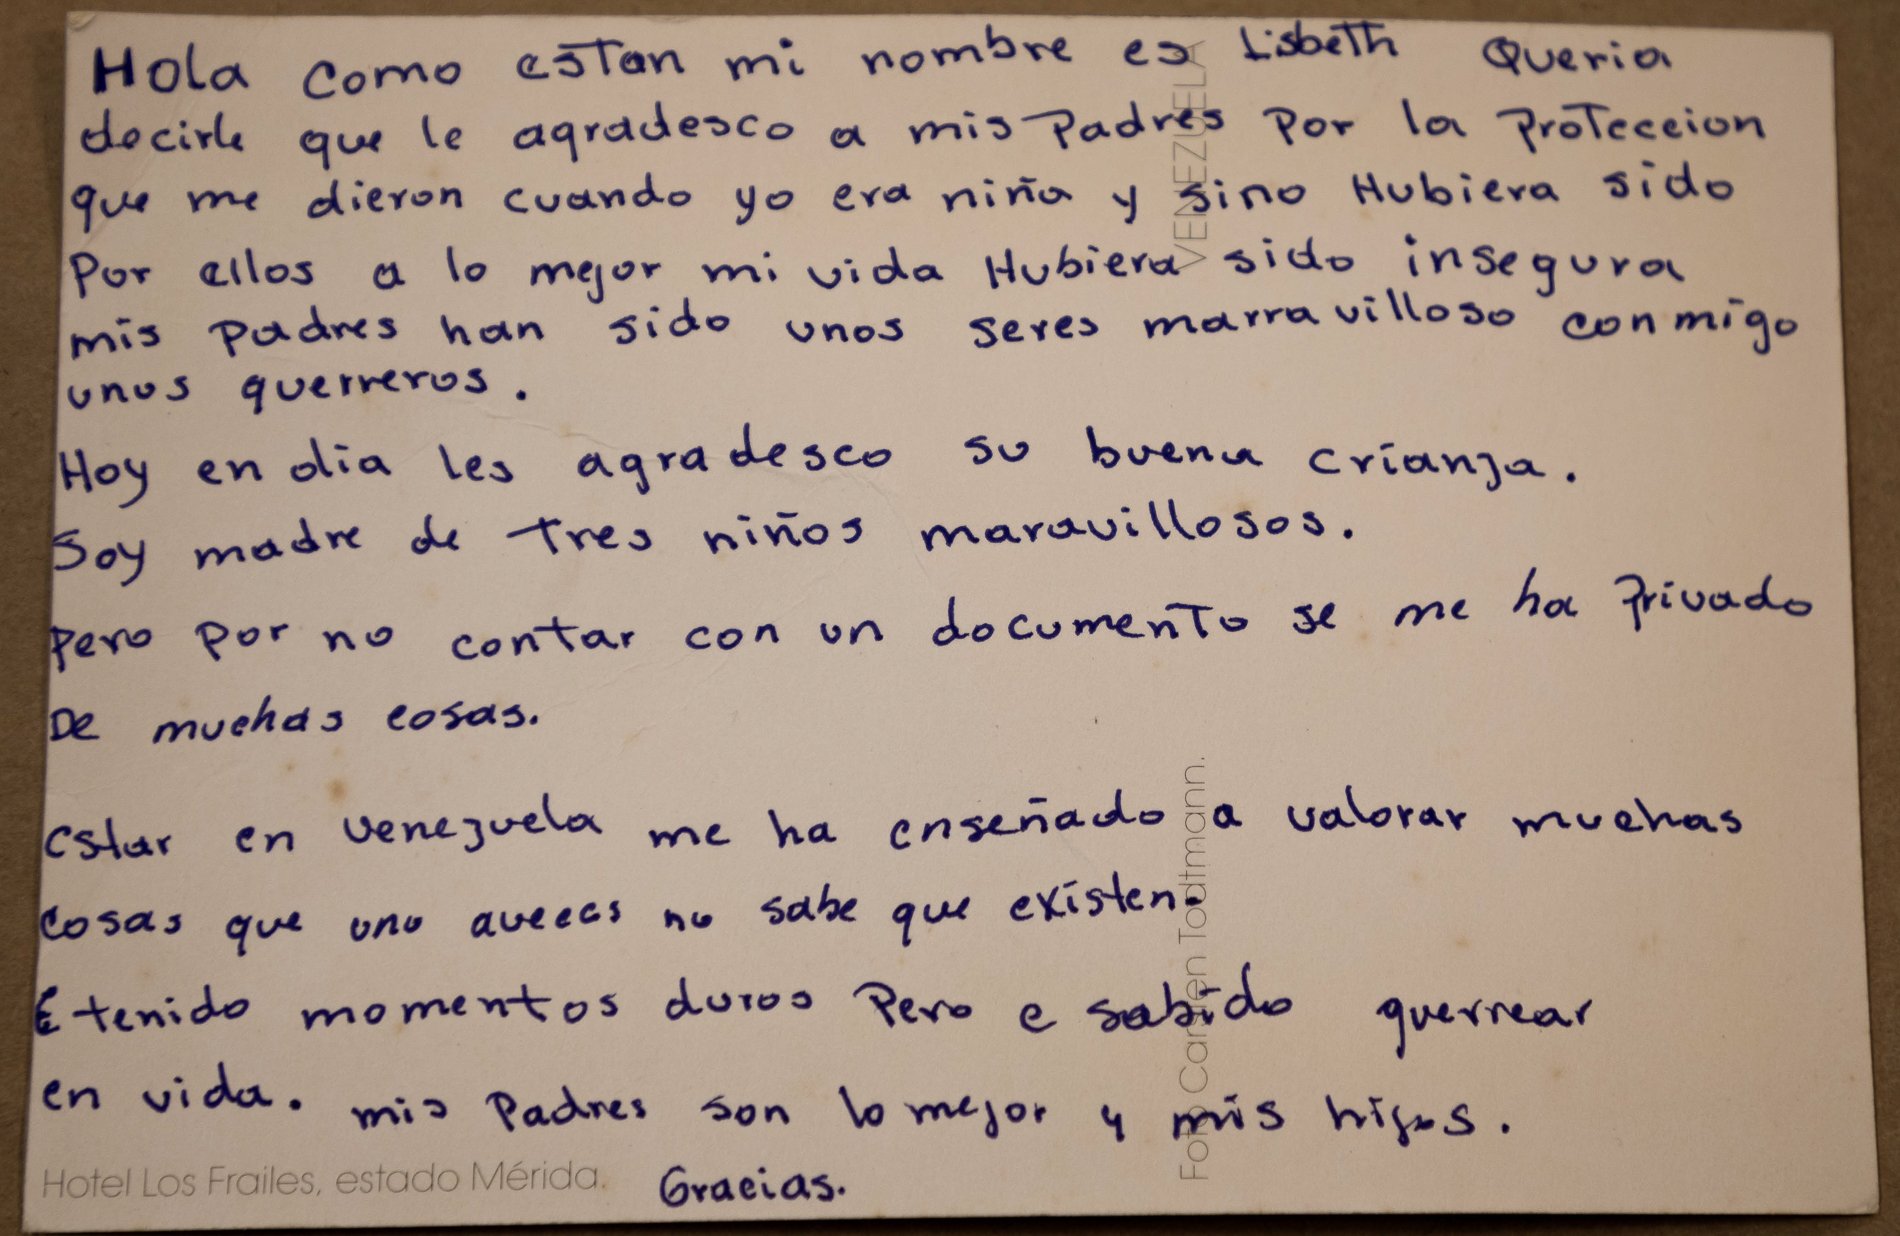 Hola como estan mi nombre es Lisbeth Queria
decirle que le agradesco a mis Padres Por la Proteccion
que me dieron cuando yo era niña y sino Hubiera sido
Por ellos a lo mejor mi vida Hubiera sido insegura
mis Padres han sido unos seres marravilloso conmigo
unos querreros.
Hoy en dia les agradesco su buena crianza.
Soy madre de tres niños maravillosos.
Pero por no contar con un documento se me ha Privado
De muchas cosas.
Estar en venezuela me ha enseñado a valorar muchas
cosas que uno aveces no sabe que existen.
E tenido momentos duros Pero e sabido querrear
en vida. mis Padres son lo mejor y mis hijos.
Gracias.
Hotel Los Frailes, estado Mérida.
Foto Carmen Todtmann.
VENEZUELA